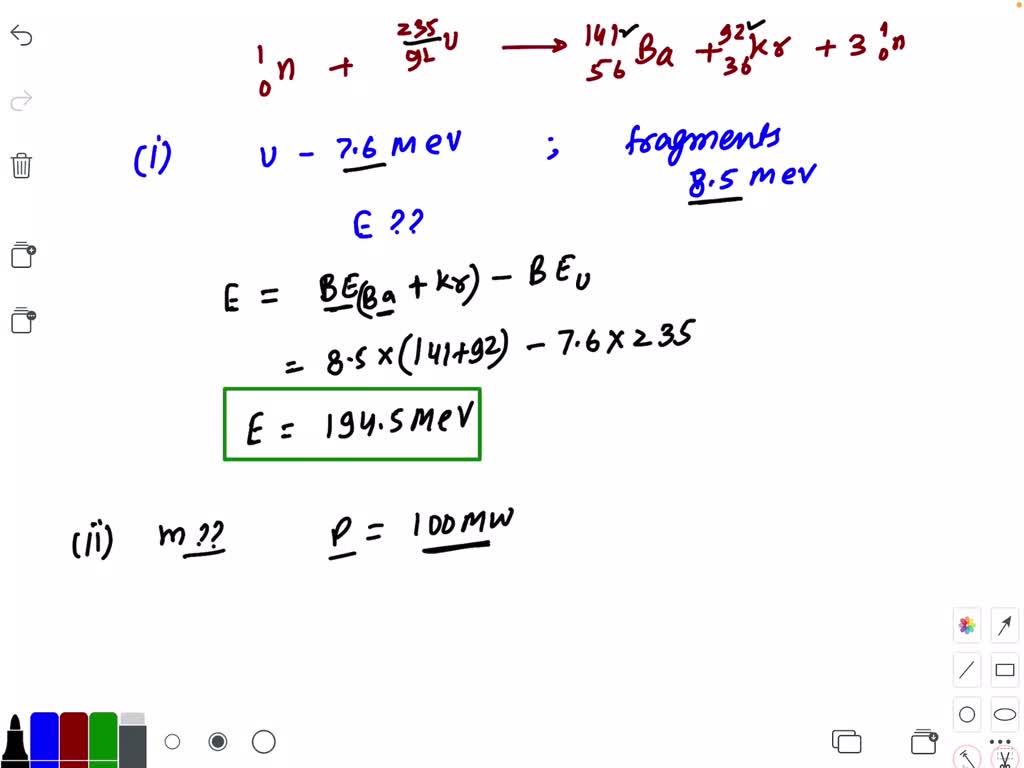 ¹₀n + ²³⁵₉₂U → ¹⁴¹₅₆Ba + ⁹²₃₆Kr + 3 ¹₀n
(i) U - 7.6 MeV ; fragments
8.5 MeV
E ??
E = BE(Ba + Kr) - BE_U
= 8.5 × (141+92) - 7.6 × 235
E = 194.5 MeV
(ii) m ?? P = 100 MW